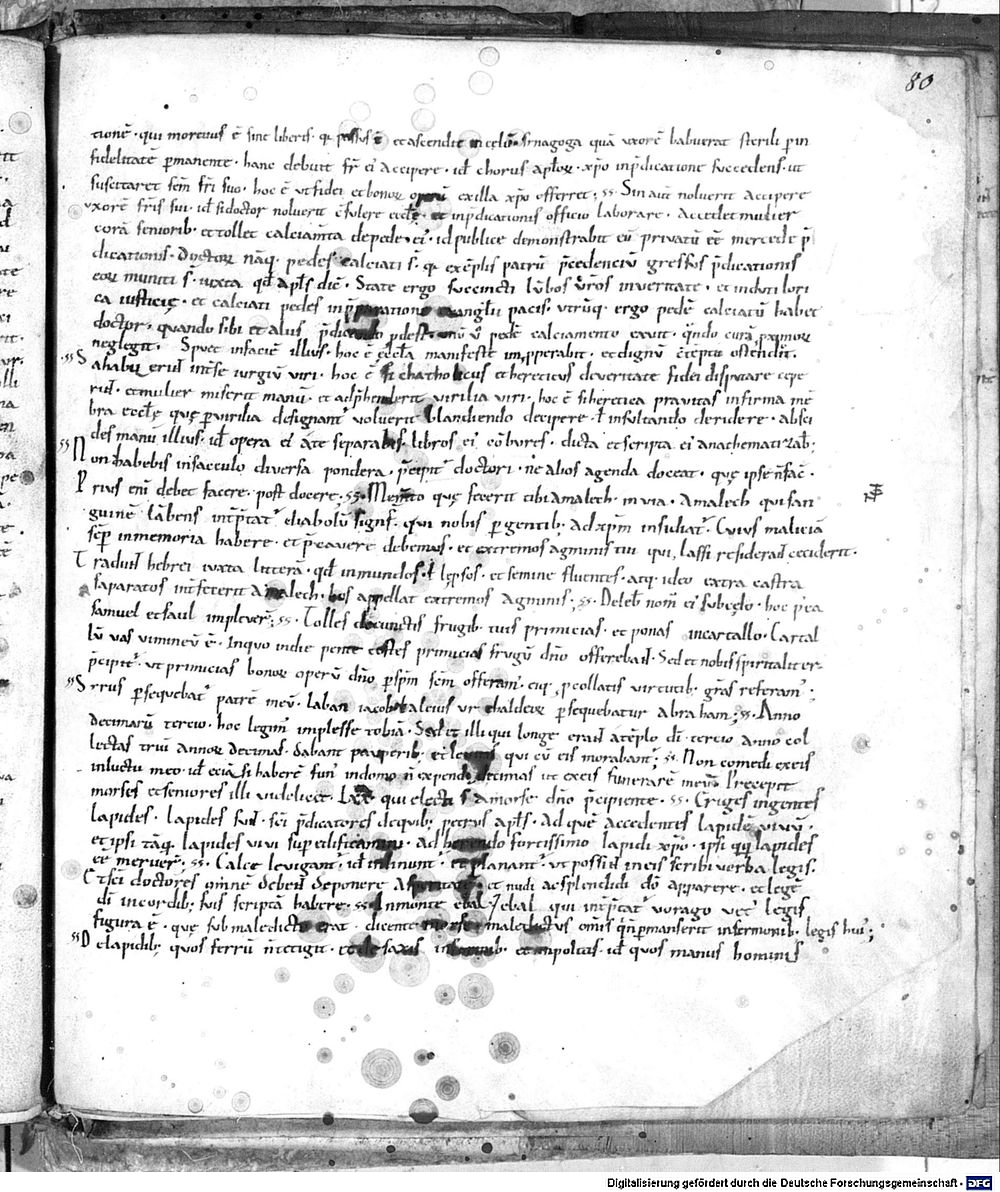 80
tionē · qui mortuus ē sine liberis · q̄ passus ē et ascendit in cęlū · Sinagoga quā uxorē habuerat sterili p in
fidelitatē pmanente · hanc debuit fr̄ ei accipere · id chorus aplor̄ · xp̄o in p̄dicatione succedens · ut
suscitaret sem̄ fr̄i suo · hoc ē ut fidei et bonor̄ operū ex illa xp̄o offerret ; Sin aut̄ noluerit accipere
uxorē fr̄is sui · id si doctor noluerit ecclę et in p̄dicationis officio laborare · Accedet mulier
corā seniorib · et tollet calciam̄ta de pede ei · id publice demonstrabit eū privatū ēē mercede p̄
dicationis · Doctor̄ nāq; pedes calciati s̄ · q̄ exēplis patrū p̄cedentiū gressus p̄dicationis
eor̄ muniti s̄ · iuxta qđ apl̄s dic̄ · State ergo succincti lūbos ūros in veritate · et induti lori
ca iusticię · et calciati pedes in p̄paratione evanglii pacis · utrūq; ergo pedē calciatū habet
doctor · quando sibi et aliis p̄dicando pdest · unū v̄ pedē calciamento exuit · q̄ndo curā pximor̄
neglegit · Spuet in faciē illius · hoc ē ęccła manifeste impperabit · et dignū
S habuerint int̄ se iurgiū viri · hoc ē si chatholicus et hereticus de veritate fidei disputare cepe
rint · et mulier miserit manū · et adp̄henderit virilia viri · hoc ē si heretica pravitas infirma mē
bra ecclę quę p virilia designant̄ voluerit blandiendo decipere ł insultando deridere · absci
des manū illius · id opera ei a te separabis · libros ei cōbures · dicta et scripta ei anathematizab ;
Non habebis in sacculo diversa pondera · p̄cipit̄ doctori · ne alios agenda doceat · quę ipse n̄ fac̄ ·
Prius eni debet facere · post docere · Mem̄to quę fecerit tibi Amalech in via · Amalech qui san
guinē lābens int̄ptat̄ diabolū signif · qui nobis pgentib; ad xp̄m insidiat̄ · Cuius maliciā
sēp in memoria habere · et p̄cavere debemus · et extremos agminis tui qui lassi residerant ceciderit ·
Tradunt hebrei iuxta litterā · qđ inmundos ł lepsos · et semine fluentes · atq; ideo extra castra
sapatos int̄fecerit Amalech · hos appellat extremos agminis ; Deleb nom̄ ei sub cęlo · hoc p ea
samuel et saul implever̄ ; Tolles de cunctis frugib · tuis primicias · et ponas in cartallo · Cartal
lū vas vimineū ē · In quo in die pente costes primicias frugū dn̄o offerebant · Sed et nobis spiritaliter
p̄cipit̄ · ut primicias bonor̄ operū dn̄o p sp̄m sc̄m offeram̄ · eiq; p collatis virtutib; gr̄as referam̄ ;
Syrus psequebat̄ patrē meū · Laban iacob · alcius ur chaldeor̄ psequebatur Abraham ; Anno
decimarū tercio · hoc legim̄ implesse tobiā · Sed et illi qui longe erant a tēplo dī · tercio anno col
lectas triū annor̄ decimas · dabant paupērib · et levitis qui cū eis morabant̄ ; Non comedi ex eis
in luctu meo · id eciā si haberē fun̄ in domo n̄ expendi decimas ut ex eis funerarē meū · Precepit
moyses et seniores illi videlicet · qui electi s̄ a moyse dn̄o p̄cipiente · Eriges ingentes
lapides · Lapides sunt sc̄i p̄dicatores de quib; petrus apl̄s · Ad quē accedentes lapidē vivū ·
et ipsi tāq; lapides vivi sup edificamini · adherendo fortissimo lapidi xp̄o · ipsi qq; lapides
ēē meruer̄ ; Calce levigant̄ · id et planant̄ · ut possint in eis scribi verba legis ·
Et sc̄i doctores omnē debent deponere Asperitatē et nudi ac splendidi dō apparere · et legē
dī in cordib; suis scriptā habere · In monte ebal · qui int̄ptat̄ vorago vet̄ legis
figura ē · quę sub maledicto erat · dicente moyse maledictus om̄is q̄ n̄ pmanserit in sermonib · legis hui̓ ;
De lapidib; quos ferrū n̄ tetigit · et de saxis informib · et inpolitis · id quos manus hominis
Digitalisierung gefördert durch die Deutsche Forschungsgemeinschaft - DFG